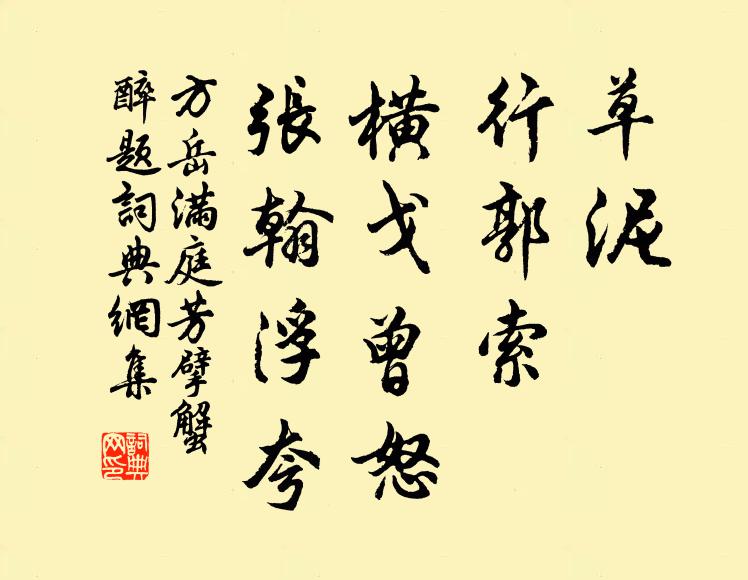 草泥
行郭索
橫戈曾怒
張翰浮夸
方岳滿庭芳擘蟹
醉題詞典網集
詞典
网印